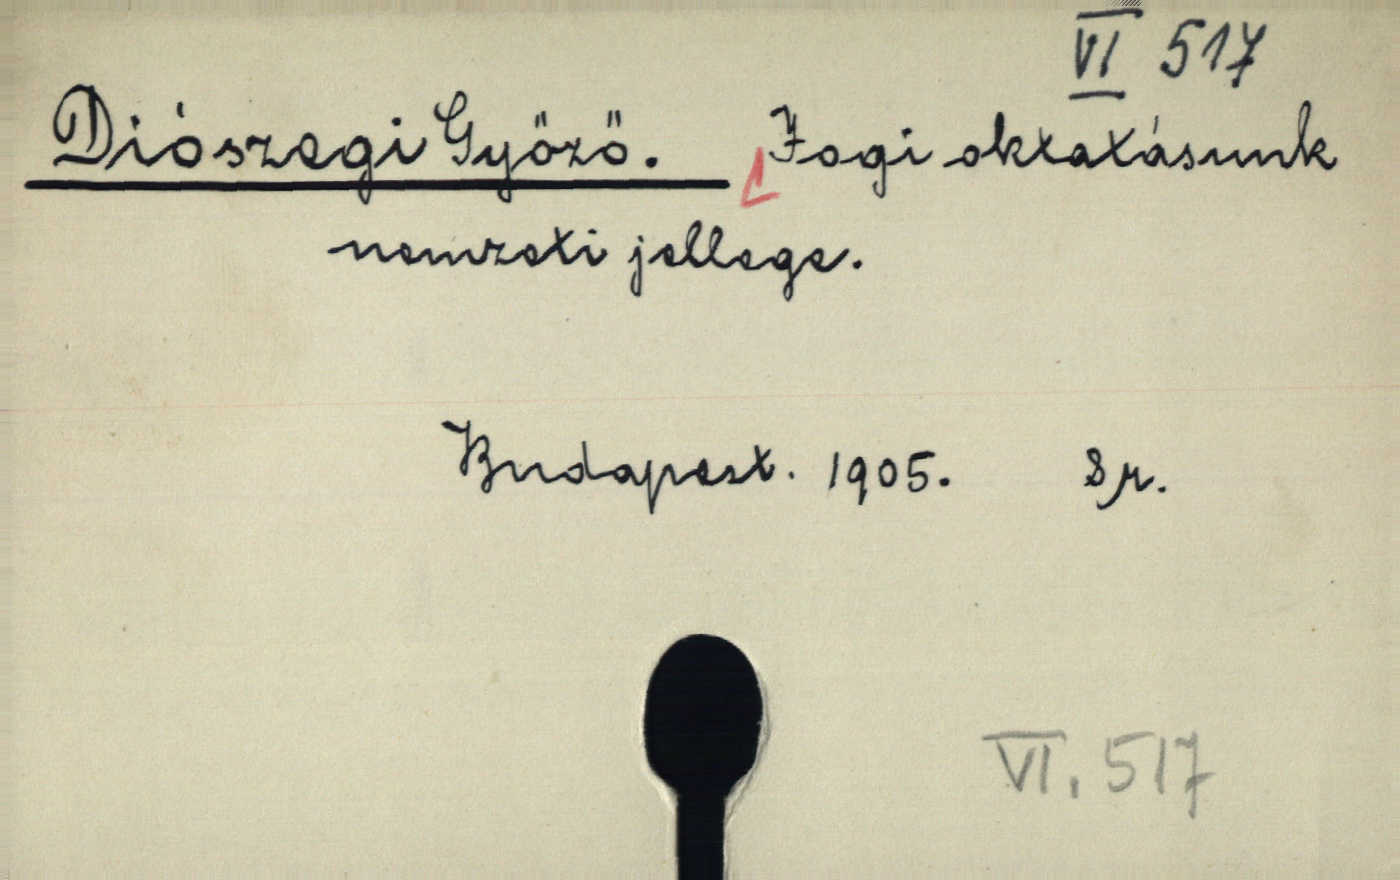 VI 517
Diószegi Győző. Jogi oktatásunk
nemzeti jellege.
Budapest. 1905. 8r.
VI. 517